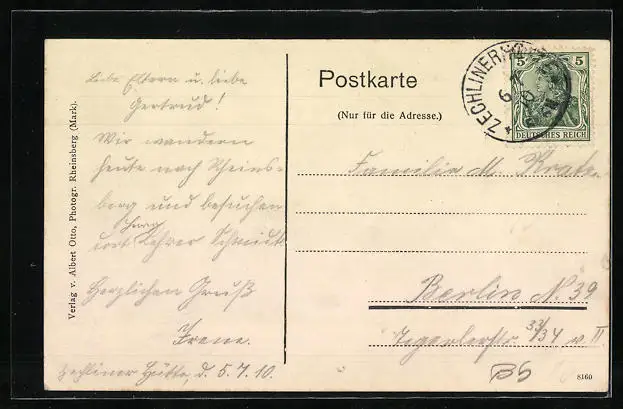 Liebe Eltern u. liebe
Gertrud!
Wir wandern
heute nach Rheins-
berg und besuchen
dort Herrn Lehrer Schmidt
Herzlichen Gruß
Irene.
Zechliner Hütte, d. 5.7.10.
Verlag v. Albert Otto, Photogr. Rheinsberg (Mark).
Postkarte
(Nur für die Adresse.)
ZECHLINER
5 5
DEUTSCHES REICH
Familie M.
Berlin N. 39
Tegelerstr. 33/34 v. II
8160